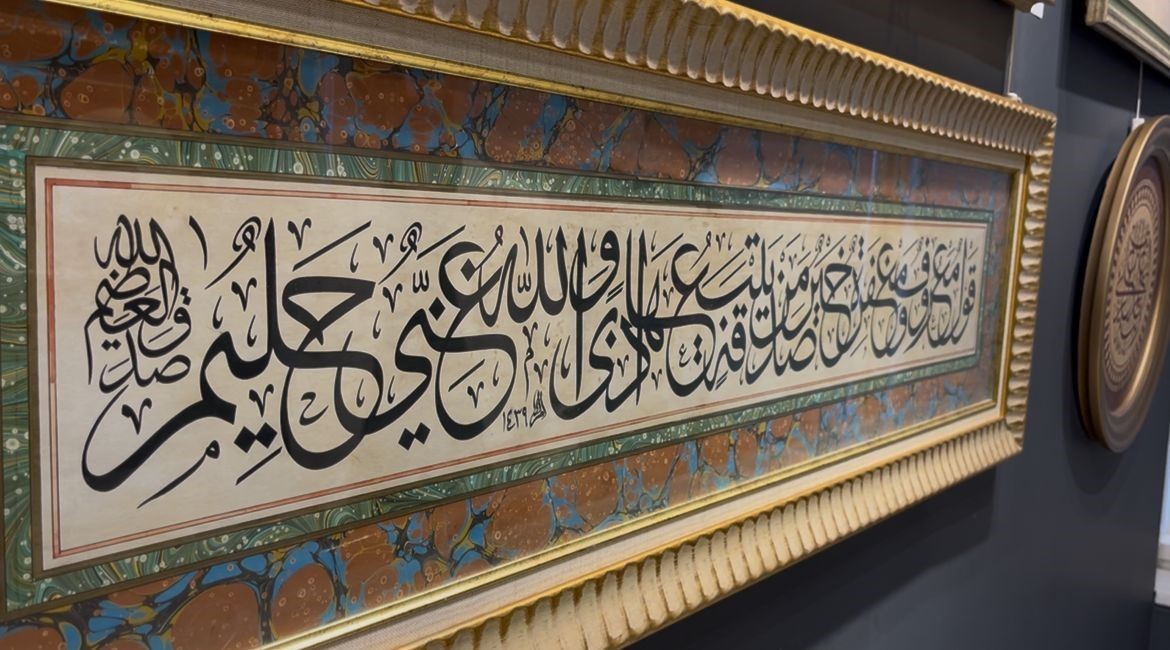 قَوْلٌ مَعْرُوفٌ وَمَغْفِرَةٌ خَيْرٌ مِنْ صَدَقَةٍ يَتْبَعُهَا أَذًى وَاللهُ غَنِيٌّ حَلِيمٌ
صدق الله العظيم
١٤٣٩